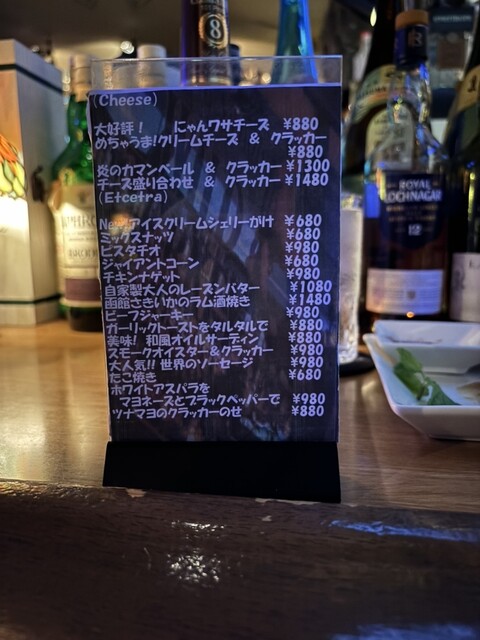 (Cheese)
大好評！ にゃんワサチーズ ¥880
めちゃうま!クリームチーズ ＆ クラッカー
¥880
炎のカマンベール ＆ クラッカー ¥1300
チーズ盛り合わせ ＆ クラッカー ¥1480
(Etcetra)
New!アイスクリームシェリーがけ ¥680
ミックスナッツ ¥680
ピスタチオ ¥980
ジャイアントコーン ¥680
チキンナゲット ¥980
自家製大人のレーズンバター ¥1080
函館さきいかのラム酒焼き ¥1480
ビーフジャーキー ¥980
ガーリックトーストをタルタルで ¥880
美味! 和風オイルサーディン ¥880
スモークオイスター＆クラッカー ¥980
大人気!! 世界のソーセージ ¥980
たこ焼き ¥680
ホワイトアスパラを
マヨネーズとブラックペッパーで ¥980
ツナマヨのクラッカーのせ ¥880
8
ROYAL
LOCHNAGAR
12